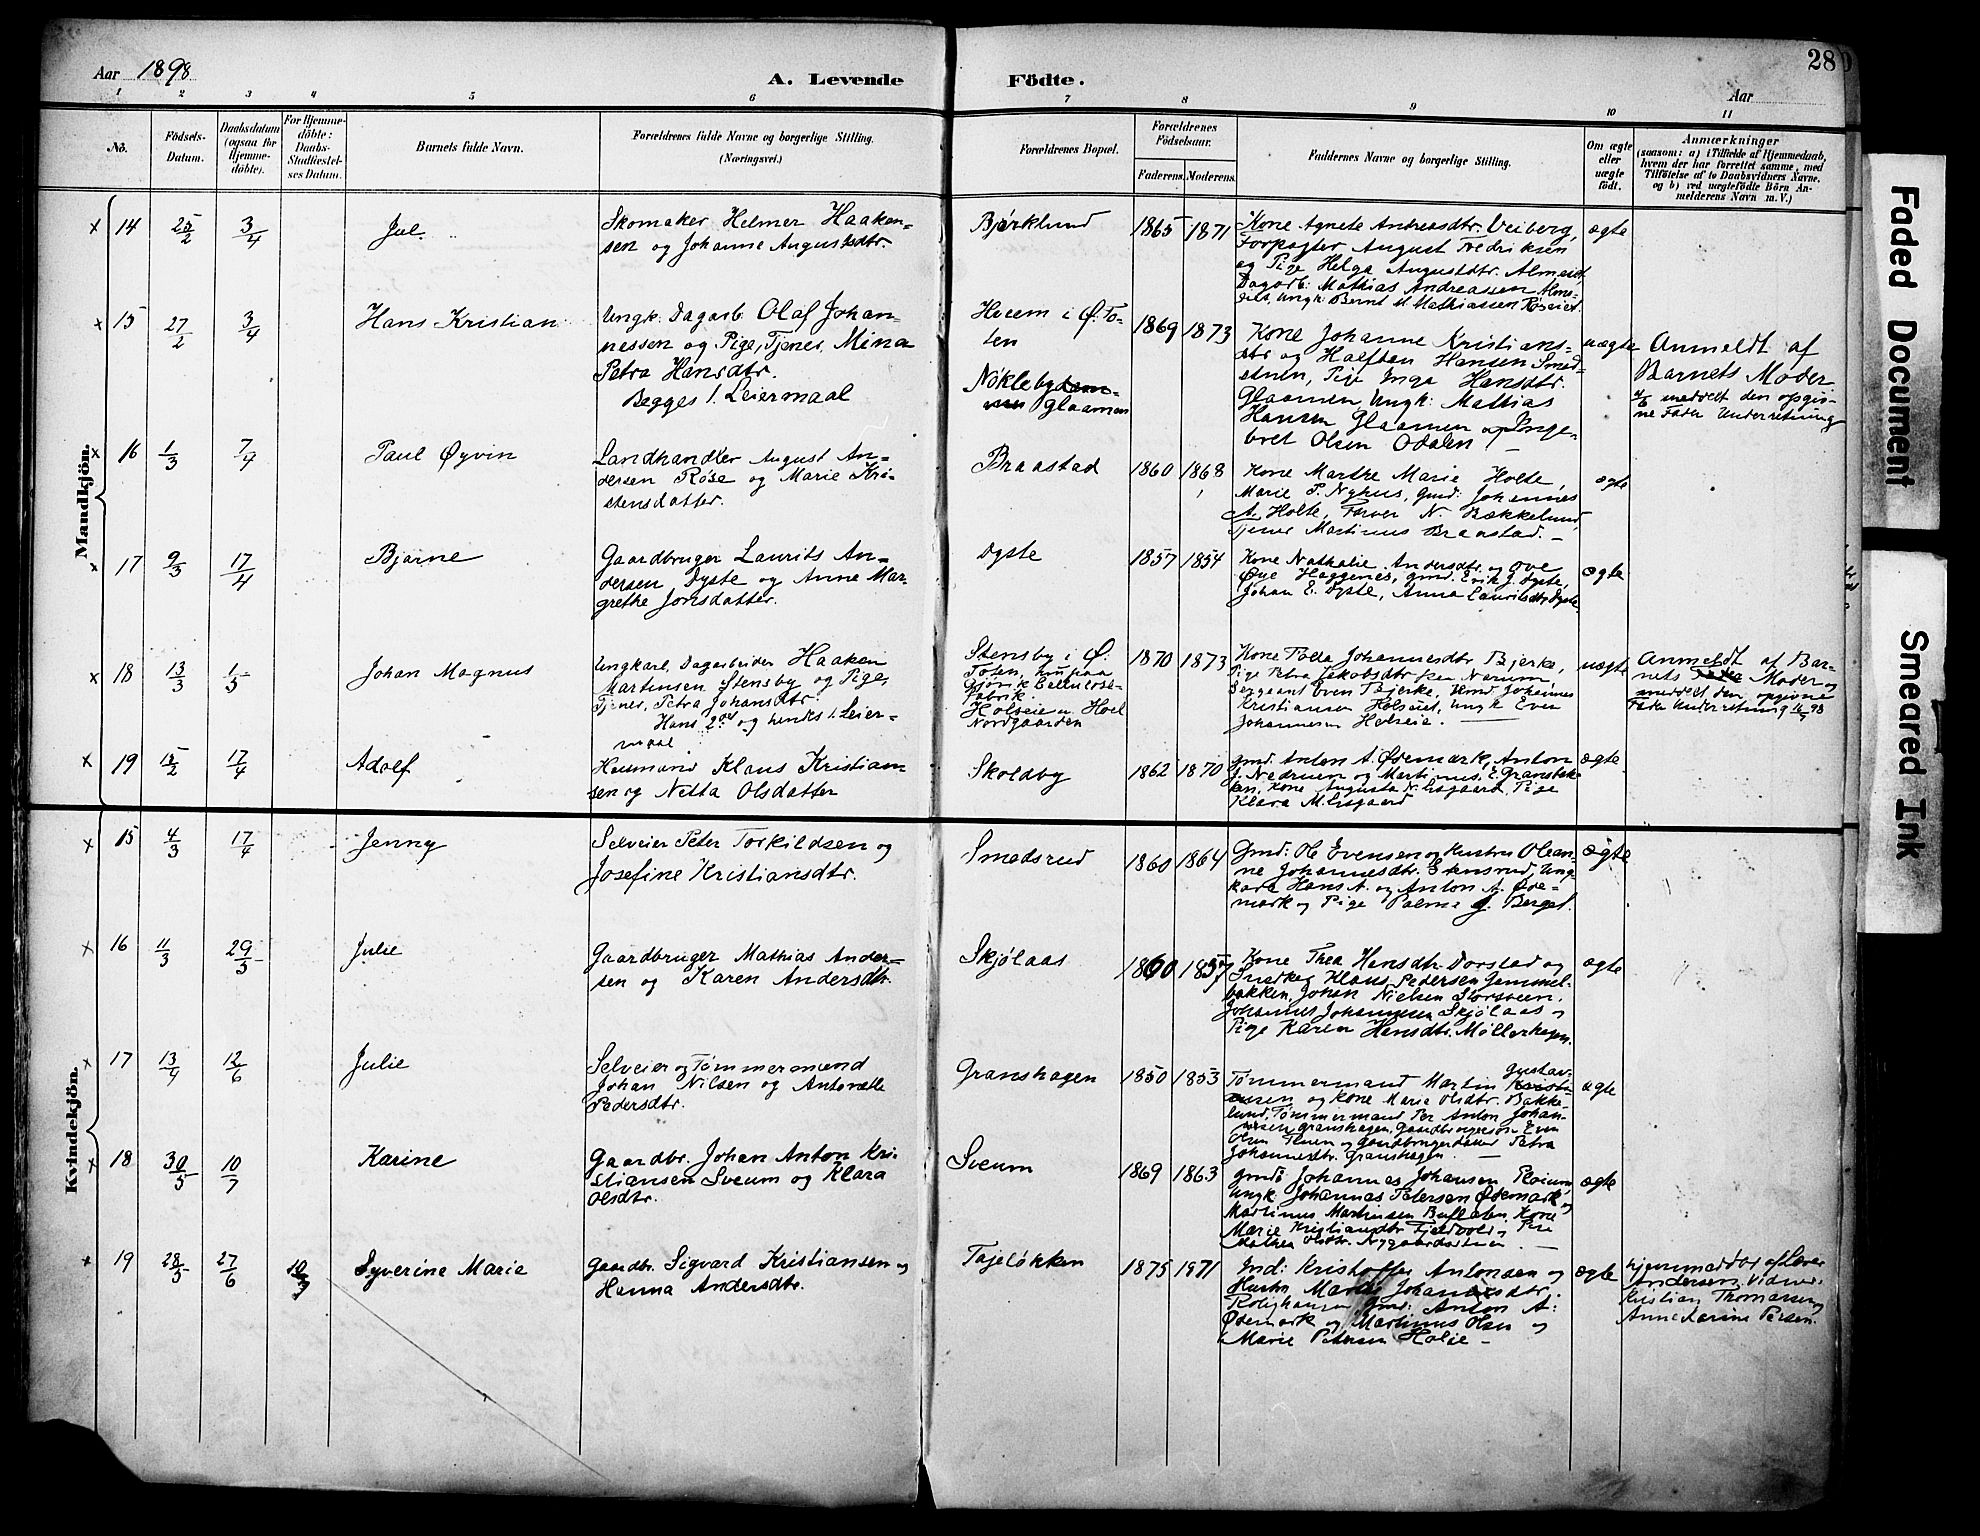 Aar 1898
A. Levende
Födte.
28
Aar
1 2 3 4 5 6 7 8 9 10 11
No.
Födsels-
Datum.
Daabsdatum
(ogsaa for
Hjemme-
döbte).
For Hjemme-
döbte:
Daabs-
Stadfæstel-
ses Datum.
Barnets fulde Navn.
Forældrenes fulde Navne og borgerlige Stilling.
(Næringsvei.)
Forældrenes Bopæl.
Forældrenes
Födselsaar.
Faderens. Moderens.
Faddernes Navne og borgerlige Stilling.
Om ægte
eller
uægte
födt.
Anmærkninger
(saasom: a) i Tilfælde af Hjemmedaab,
hvem der har forrettet samme, med
Tilföielse af to Daabsvidners Navne.
og b) ved uægtefödte Börn An-
melderens Navn m. V.)
Mandkjön.
× 14 25/2 3/4 Jul.
Skomaker Helmer Haaken-
sen og Johanne Augustsdtr.
Bjørklund
1865 1871
Kone Agnete Andreasdtr. Veiberg,
Forpagter August Fredriksen
og Pige Helga Augustdtr. Almseiet,
Dagarb. Mathias Andreassen Alms-
eiet, Ungk. Bernt M. Mathiassen Røseiet.
ægte
× 15 27/2 3/4 Hans Kristian
Ungk. Dagarb Olaf Johan-
nessen og Pige, Tjenes. Mina
Petra Hansdtr.
Begges 1. Leiermaal
Hveem i Ø. To-
ten
Nøkleby
Glaamen
1869 1873
Kone Johanne Kristians-
dtr og Halften Hansen Smed-
stuen, Pige Inga Hansdtr.
Glaamen, Ungk: Mathias
Hansen Glaamen og Inge-
bret Olsen Odalen
uægte
Anmeldt af
Barnets Moder
meddelt den opgiv-
ne Fader Underretning
× 16 1/3 7/4 Paul Øyvin
Landhandler August An-
dersen Røise og Marie Kri-
stensdatter.
Braastad
1860 1868
Kone Marthe Marie Holte,
Marie P. Nyhus, Gmd: Johannes
A. Holte, Farver N. Bækkelund,
Tjener Martinus Braastad.
ægte
× 17 9/3 17/4 Bjarne
Gaardbruger Laurits An-
dersen Dyste og Anne Mar-
grethe Jonsdatter.
Dyste
1857 1854
Kone Nathalie Andersdtr. og Ove
Øye Haggenes, gmd. Erik J. Dyste,
Johan E. Dyste, Anna Lauritsdtr Dyste
ægte
× 18 13/3 1/5 Johan Magnus
Ungkarl, Dagarbeider Haaken
Martinsen Stensby og Pige,
Tjenes, Petra Johansdtr.
Hans 2det og hendes 1. Leier-
maal
Stensby i Ø.
Toten, nu paa
Gjøvik Cellulose-
fabrik.
Holseie u. Hoel
Nordgaarden
1870 1873
Kone Tolla Johannesdtr Bjerke,
Pige Petra Jakobsdtr fra Narum,
Sergeant Even Bjerke, Gmd. Johannes
Kristiansen Holseiet, Ungk Even
Johannesen Holseie.
uægte
Anmeldt af Bar-
nets Moder og
meddelt den opgivne
Fader Underretning
× 19 15/2 17/4 Adolf
Husmand Klaus Kristian-
sen og Netta Olsdatter
Skoldby
1862 1870
gmd. Anton A. Ødemark, Anton
J. Nedruem og Martinus E. Gransbak-
ken, Kone Augusta N. Lisgaard, Pige
Klara M. Lisgaard
ægte
Kvindekjön.
× 15 4/3 17/4 Jenny
Selveier Peter Torkildsen og
Josefine Kristiansdtr.
Smedsrud
1860 1864
Gmd: Ole Evensen og Hustru Olean-
ne Johannesdtr. Stensrud, Ung-
karle Hans A. og Anton A. Øde-
mark og Pige Palma J. Berget.
ægte
× 16 11/3 29/5 Julie
Gaardbruger Mathias Ander-
sen og Karen Andersdtr.
Skjølaas
1860 1857
Kone Thea Hansdtr. Dorstad og
Snedker Klaus Pedersen Gammel-
bakken, Johan Nielsen Storsveen,
Johannes Johannesen Skjølaas,
Pige Karen Hansdtr. Møllerhagen.
ægte
× 17 13/4 12/6 Julie
Selveier og Tømmermand
Johan Nilsen og Antonette
Pedersdtr.
Granshagen
1850 1853
Tømmermand Martin Gustav-
sen og Kone Marie Olsdtr. Bakke-
lund, Tømmermand Per Anton Johan-
nesen Granshagen, Gaardbrugersøn Even
Olsen Tuen og Gaardbrugerdatter Petra
Johannesdtr. Granshagen.
ægte
× 18 30/5 10/7 Karine
Gaardbr. Johan Anton Kri-
stiansen Sveum og Klara
Olsdtr.
Sveum
1869 1863
gmd: Johannes Johansen
Ungk. Johannes Petersen Ødemark og
Martinus Martinsen Kone
Marie Kristiansdtr Fjeldvold, Pige
Mathea Olsdtr.
ægte
× 19 28/5 27/6 10/7 Syverine Marie
Gaardbr. Sigvard Kristiansen og
Hanna Andersdtr.
Tajeløkken
1875 1871
Gmd: Kristoffer Antonsen og
Hustru Marthe Johannesdtr.
Rolighaugen Gmd: Anton A.
Ødemark og Martinus Olsen og
Marie Petersen Holie
ægte
hjemmedøbt af Lærer
Andersen. Vidner:
Kristian Thomassen og
Anne Karine Persen.
Faded Document
Smeared Ink